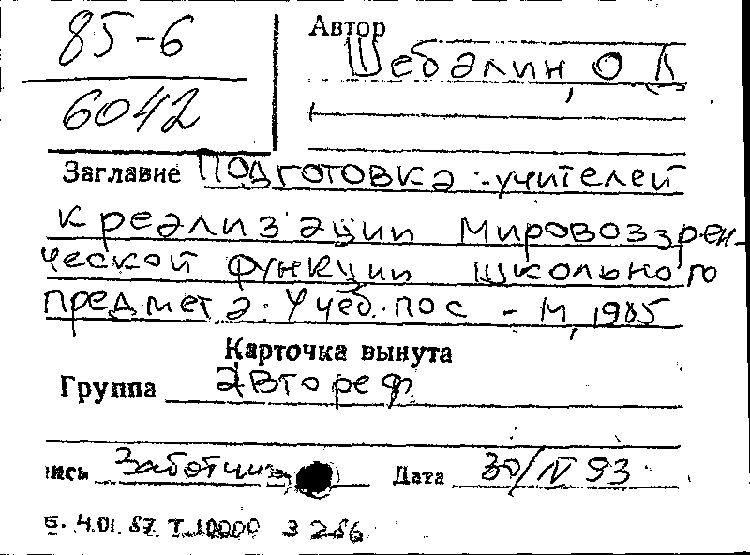 85-6
6042
Автор
Шебалин, О Д
Заглавие Подготовка учителей
к реализации мировоззрен-
ческой функции школьного
предмета. Учеб. пос - М, 1985
Карточка вынута
Группа Автореф
пись Дата 30/IV 93.
4.01.87. Т. 10000 З 286